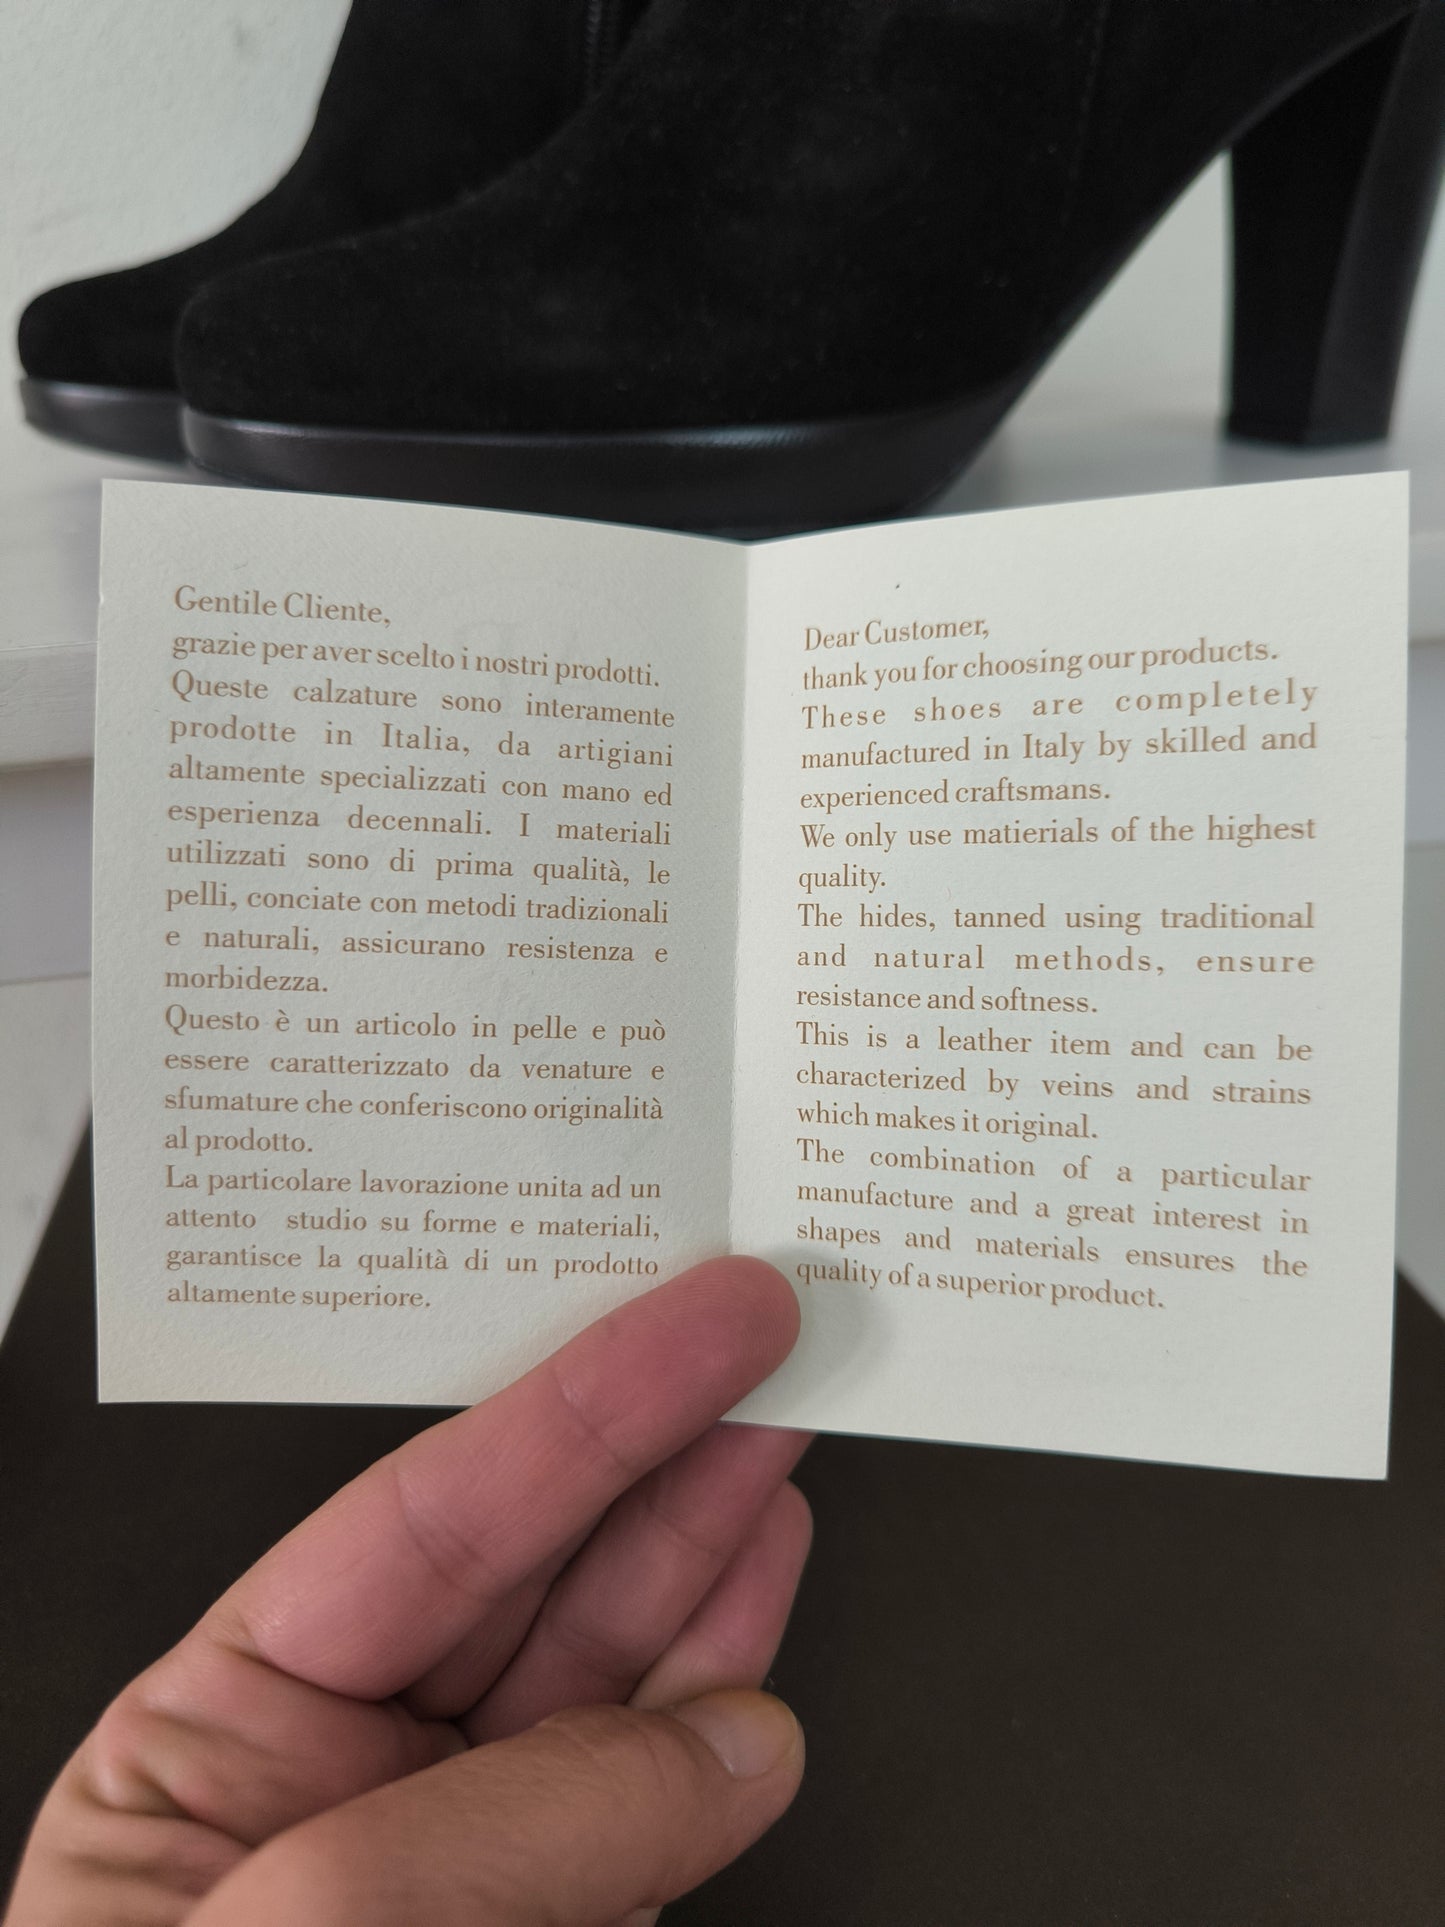 Gentile Cliente,
grazie per aver scelto i nostri prodotti.
Queste calzature sono interamente
prodotte in Italia, da artigiani
altamente specializzati con mano ed
esperienza decennali. I materiali
utilizzati sono di prima qualità, le
pelli, conciate con metodi tradizionali
e naturali, assicurano resistenza e
morbidezza.
Questo è un articolo in pelle e può
essere caratterizzato da venature e
sfumature che conferiscono originalità
al prodotto.
La particolare lavorazione unita ad un
attento studio su forme e materiali,
garantisce la qualità di un prodotto
altamente superiore.
Dear Customer,
thank you for choosing our products.
These shoes are completely
manufactured in Italy by skilled and
experienced craftsmans.
We only use matierials of the highest
quality.
The hides, tanned using traditional
and natural methods, ensure
resistance and softness.
This is a leather item and can be
characterized by veins and strains
which makes it original.
The combination of a particular
manufacture and a great interest in
shapes and materials ensures the
quality of a superior product.